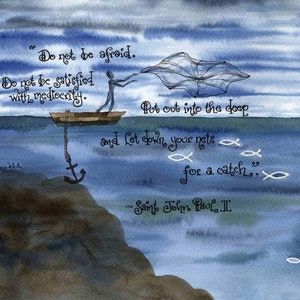 "Do not be afraid.
Do not be satisfied
with mediocrity.
Put out into the deep
and let down your nets
for a catch".
~ Saint John Paul II